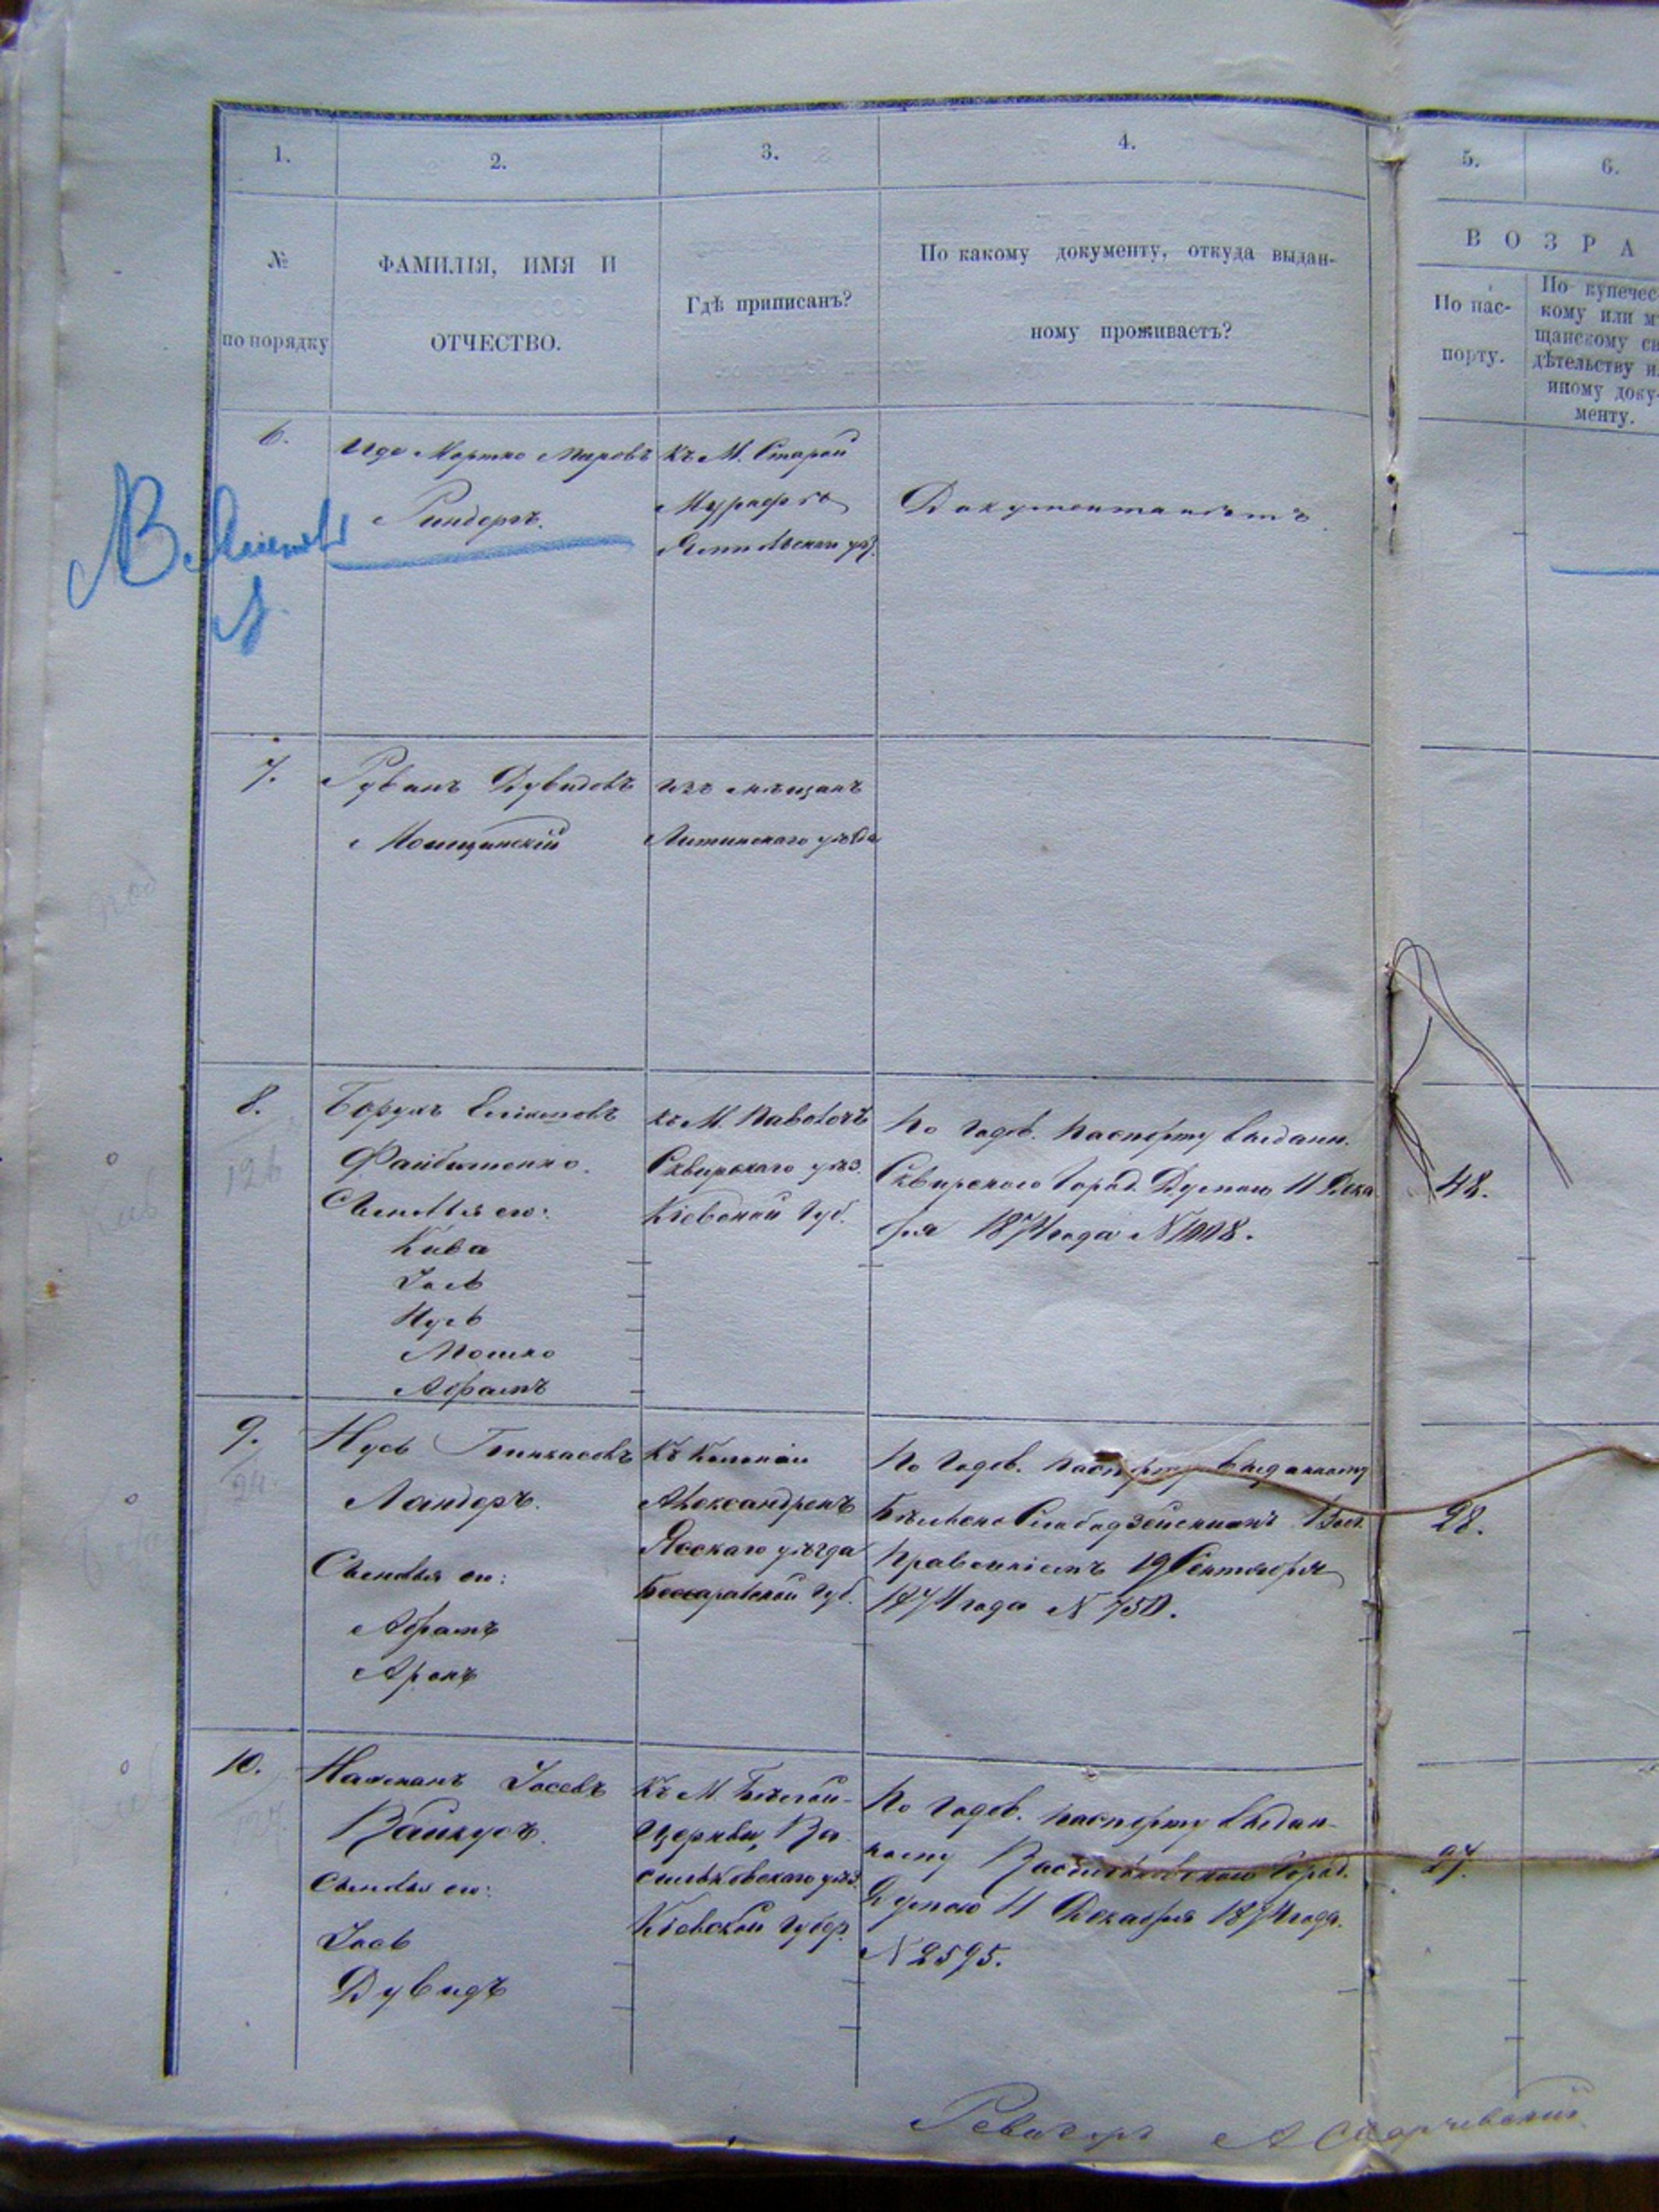 1.
2.
3.
4.
5.
6.
№
по порядку
ФАМИЛІЯ, ИМЯ И
ОТЧЕСТВО.
Гдѣ приписанъ?
По какому документу, откуда выдан-
ному проживаетъ?
В О З Р А
По пас-
порту.
По купечес-
кому или мѣ
щанскому св
дѣтельству и
иному доку-
менту.
6.
Мортко
Риндеръ.
Къ М. Старой
Мурафѣ
Документа нѣтъ
7.
Рувинъ Дувидовъ
Мощинскій
Изъ мѣщанъ
Литинскаго уѣзда
8.
Борухъ
Файбишенко.
Семья его:
Кива
Іось
Нусь
Мошко
Абрамъ
къ М. Паволочѣ
Сквирскаго уѣз.
Кіевской Губ.
По годов. паспорту выдан.
Сквирскою Город. Думою 11 Дека
бря 1874 года № 1008.
48.
9.
Нусь Пинхасовъ
Ландеръ.
Семья ег:
Абрамъ
Аронъ
Къ Колоніи
Александренъ
Ясскаго уѣзда
Бессарабской Губ.
По годов. паспорту выданному
Слободзейскимъ Вол.
Правленіемъ 19 Сентября
1874 года № 750.
28.
10.
Нахманъ Іосевъ
Вайнусъ.
Семья его:
Іось
Дувидъ
Къ М. Бѣлой-
Церкви, Ва-
сильковскаго уѣз.
Кіевской Губер.
По годов. паспорту выдан-
ному Васильковскою Город.
Думою 11 Декабря 1874 года.
№ 2595.
27.
Ревизоръ